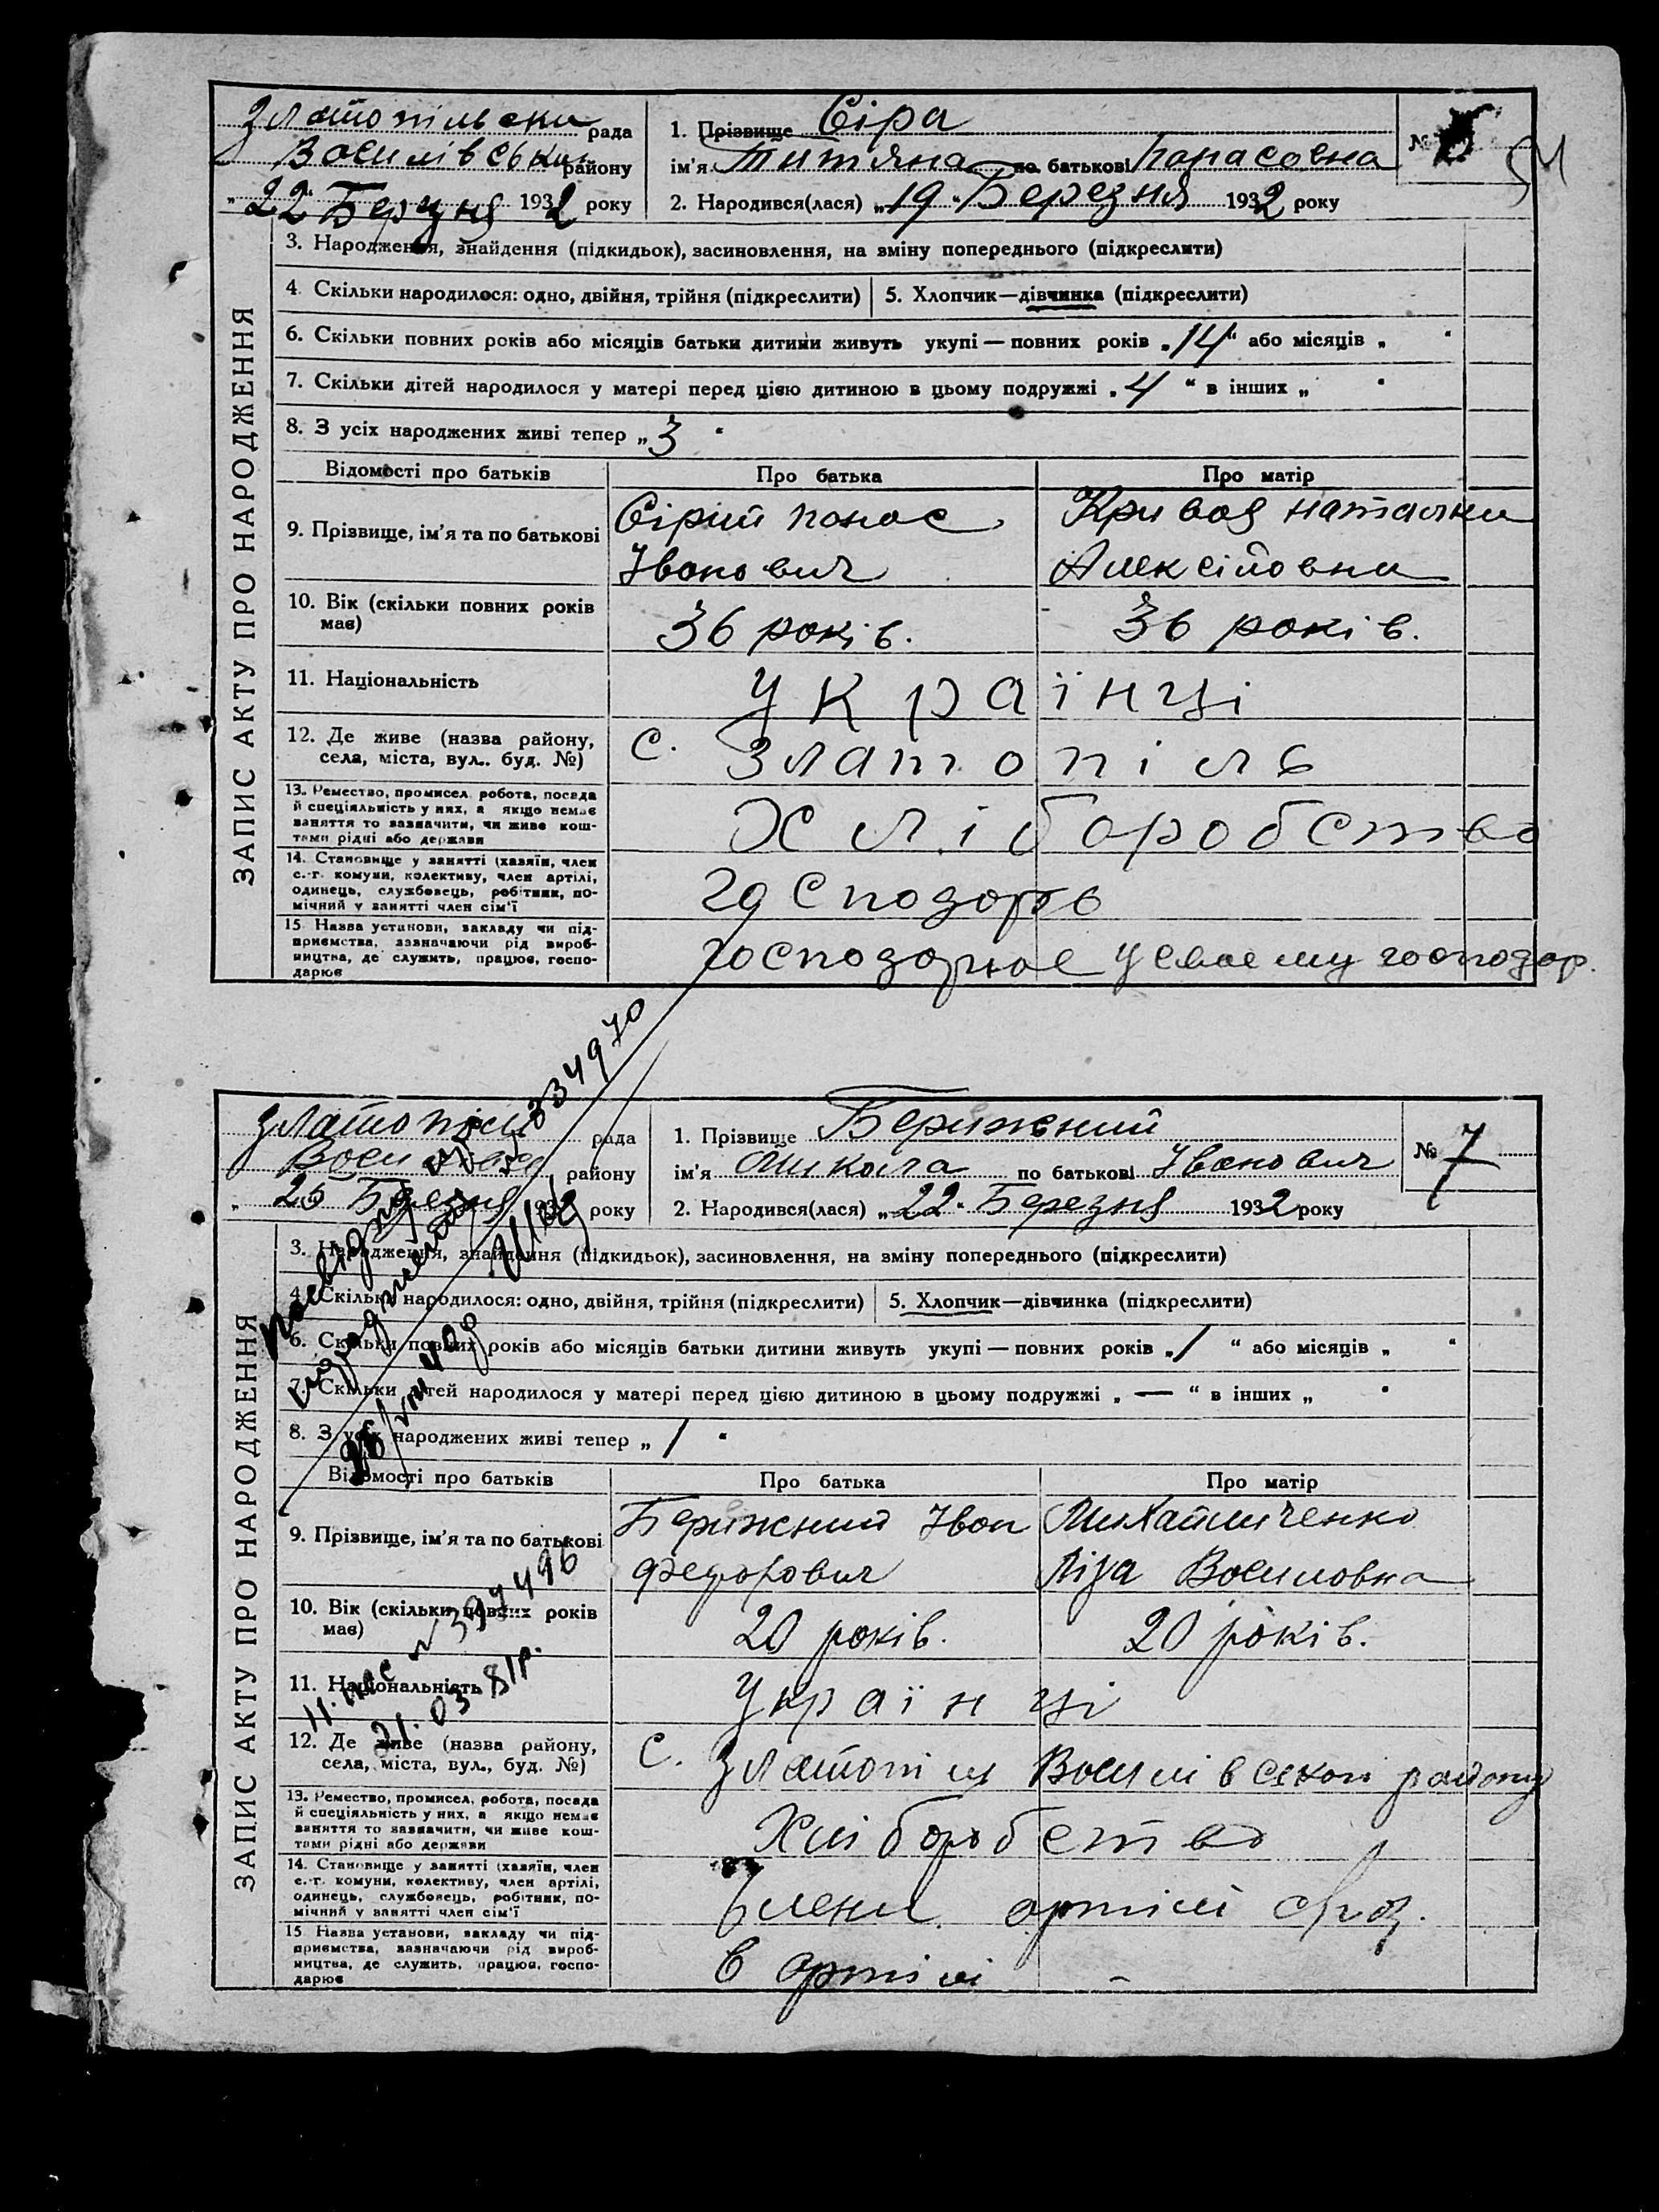 Златопільска рада
Василівська району
„22" Березня 1932 року
1. Прізвище Сіра
ім'я Титяна по батькові Панасовна
2. Народився(лася) „19" Березня 1932 року
№
54
ЗАПИС АКТУ ПРО НАРОДЖЕННЯ
3. Народження, знайдення (підкидьок), засиновлення, на зміну попереднього (підкреслити)
4. Скільки народилося: одно, двійня, трійня (підкреслити) 5. Хлопчик—дівчинка (підкреслити)
6. Скільки повних років або місяців батьки дитини живуть укупі — повних років „14" або місяців „ "
7. Скільки дітей народилося у матері перед цією дитиною в цьому подружжі „4" в інших „ "
8. З усіх народжених живі тепер „3"
Відомості про батьків Про батька Про матір
9. Прізвище, ім'я та по батькові
Сірий Панас
Іванович
Кривая Наталка
Алексійовна
10. Вік (скільки повних років
має)
36 років. 36 років.
11. Національність Українці
12. Де живе (назва району,
села, міста, вул., буд. №)
с. Златопіль
13. Ремество, промисел, робота, посада
й спеціяльність у них, а якщо немає
заняття то зазначити, чи живе кош-
тами рідні або держави
Хліборобство
14. Становище у занятті (хазяїн, член
с.-г. комуни, колективу, член артілі,
одинець, службовець, робітник, по-
мічний у занятті член сім'ї
Господарь
15. Назва установи, закладу чи під-
приємства, зазначаючи рід вироб-
ництва, де служить, працює, госпо-
дарює
господарює у своему господар.
рада
району
25 Березня 193 року
1. Прізвище Бережний
ім'я Микола по батькові Іванович
2. Народився(лася) „22" Березня 1932 року
№ 7
ЗАПИС АКТУ ПРО НАРОДЖЕННЯ
3. Народження, знайдення (підкидьок), засиновлення, на зміну попереднього (підкреслити)
4. Скільки народилося: одно, двійня, трійня (підкреслити) 5. Хлопчик—дівчинка (підкреслити)
6. Скільки повних років або місяців батьки дитини живуть укупі — повних років „1" або місяців „ "
7. Скільки дітей народилося у матері перед цією дитиною в цьому подружжі „—" в інших „ "
8. З усіх народжених живі тепер „1"
Відомості про батьків Про батька Про матір
9. Прізвище, ім'я та по батькові
Бережний Іван
Федорович
Ліза Василовна
10. Вік (скільки повних років
має)
20 років. 20 років.
11. Національність Українці
12. Де живе (назва району,
села, міста, вул., буд. №)
с. Златопіль Василівськой району
13. Ремество, промисел, робота, посада
й спеціяльність у них, а якщо немає
заняття то зазначити, чи живе кош-
тами рідні або держави
Хліборобство
14. Становище у занятті (хазяїн, член
с.-г. комуни, колективу, член артілі,
одинець, службовець, робітник, по-
мічний у занятті член сім'ї
Члени артілі
15. Назва установи, закладу чи під-
приємства, зазначаючи рід вироб-
ництва, де служить, працює, госпо-
дарює
в артілі -
№ 397496
21.03 81р.